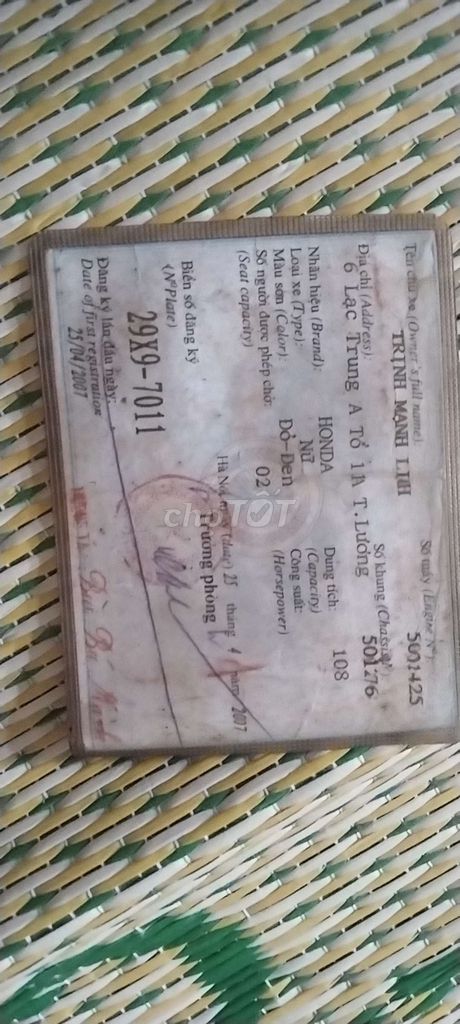 Tên chủ xe (Owner's full name): Số máy (Engine N°):
TRỊNH MẠNH
Địa chỉ (Address): Số khung (Chassis N°):
6 Lạc Trung A Tổ 1A T.Lương 501276
Nhãn hiệu (Brand): HONDA Dung tích: 108
Loại xe (Type): Nữ (Capacity)
Màu sơn (Color): Đỏ-Đen Công suất:
Số người được phép chở: 02 (Horsepower)
(Seat capacity)
Hà Nội, ngày (day) 25 tháng 4 năm 2007
Biển số đăng ký Trưởng phòng
(N°Plate)
29X9-7011
Đăng ký lần đầu ngày:
Date of first registration
25/04/2007
chợTỐT